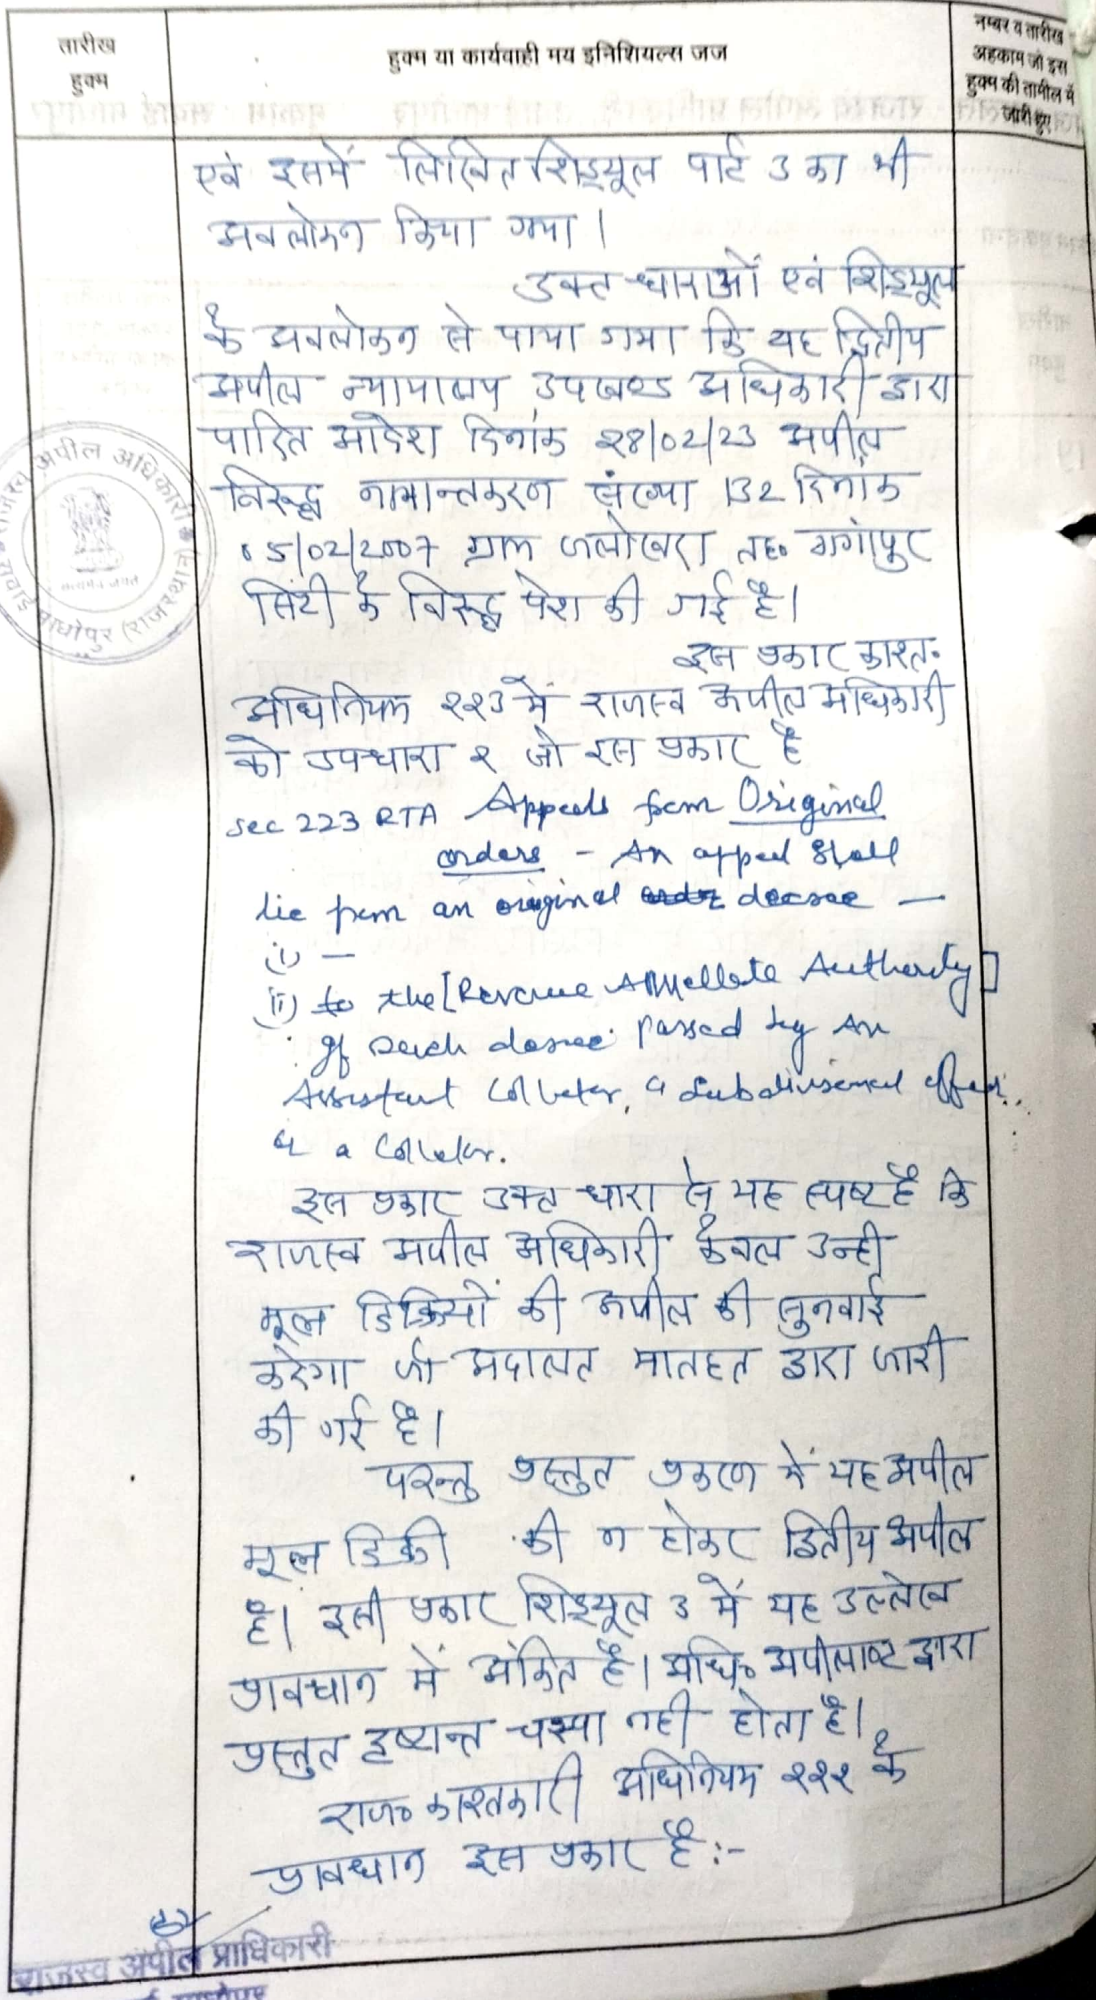 तारीख
हुक्म
हुक्म या कार्यवाही मय इनिशियल्स जज
नम्बर व तारीख
अहकाम जो इस
हुक्म की तामील में
जारी हुए
एवं इसमें लिखित शिड्यूल पार्ट 3 का भी
अवलोकन किया गया।
उक्त धाराओं एवं शिड्यूल
के अवलोकन से पाया गया कि यह द्वितीय
अपील न्यायालय उपखण्ड अधिकारी द्वारा
पारित आदेश दिनांक २8/02/23 अपील
विरूद्ध नामान्तकरण संख्या 132 दिनांक
05/02/2007 ग्राम जलोखरा तह० गंगापुर
सिटी के विरूद्ध पेश की गई है।
इस प्रकार काश्त०
अधिनियम २२3 में राजस्व अपील अधिकारी
को उपधारा २ जो इस प्रकार है
Sec 223 RTA Appeals from Original
orders - An appeal shall
lie from an original decree —
(i) —
(ii) to the [Revenue Appellate Authority]
if such decree passed by an
Assistant Collector, a Subdivisional officer
or a Collector.
इस प्रकार उक्त धारा से यह स्पष्ट है कि
राजस्व अपील अधिकारी केवल उन्ही
मूल डिक्रियों की अपील की सुनवाई
करेगा जो अदालत मातहत द्वारा जारी
की गई है।
परन्तु प्रस्तुत प्रकरण में यह अपील
मूल डिक्री की न होकर द्वितीय अपील
है। इसी प्रकार शिड्यूल 3 में यह उल्लेख
प्रावधान में अंकित है। अधि० अपीलाण्ट द्वारा
प्रस्तुत दृष्यान्त चस्पा नही होता है।
राज० काश्तकारी अधिनियम २२२ के
प्रावधान इस प्रकार है :-
राजस्व अपील अधिकारी
सवाई माधोपुर (राजस्थान)
सत्यमेव जयते
राजस्व अपील प्राधिकारी